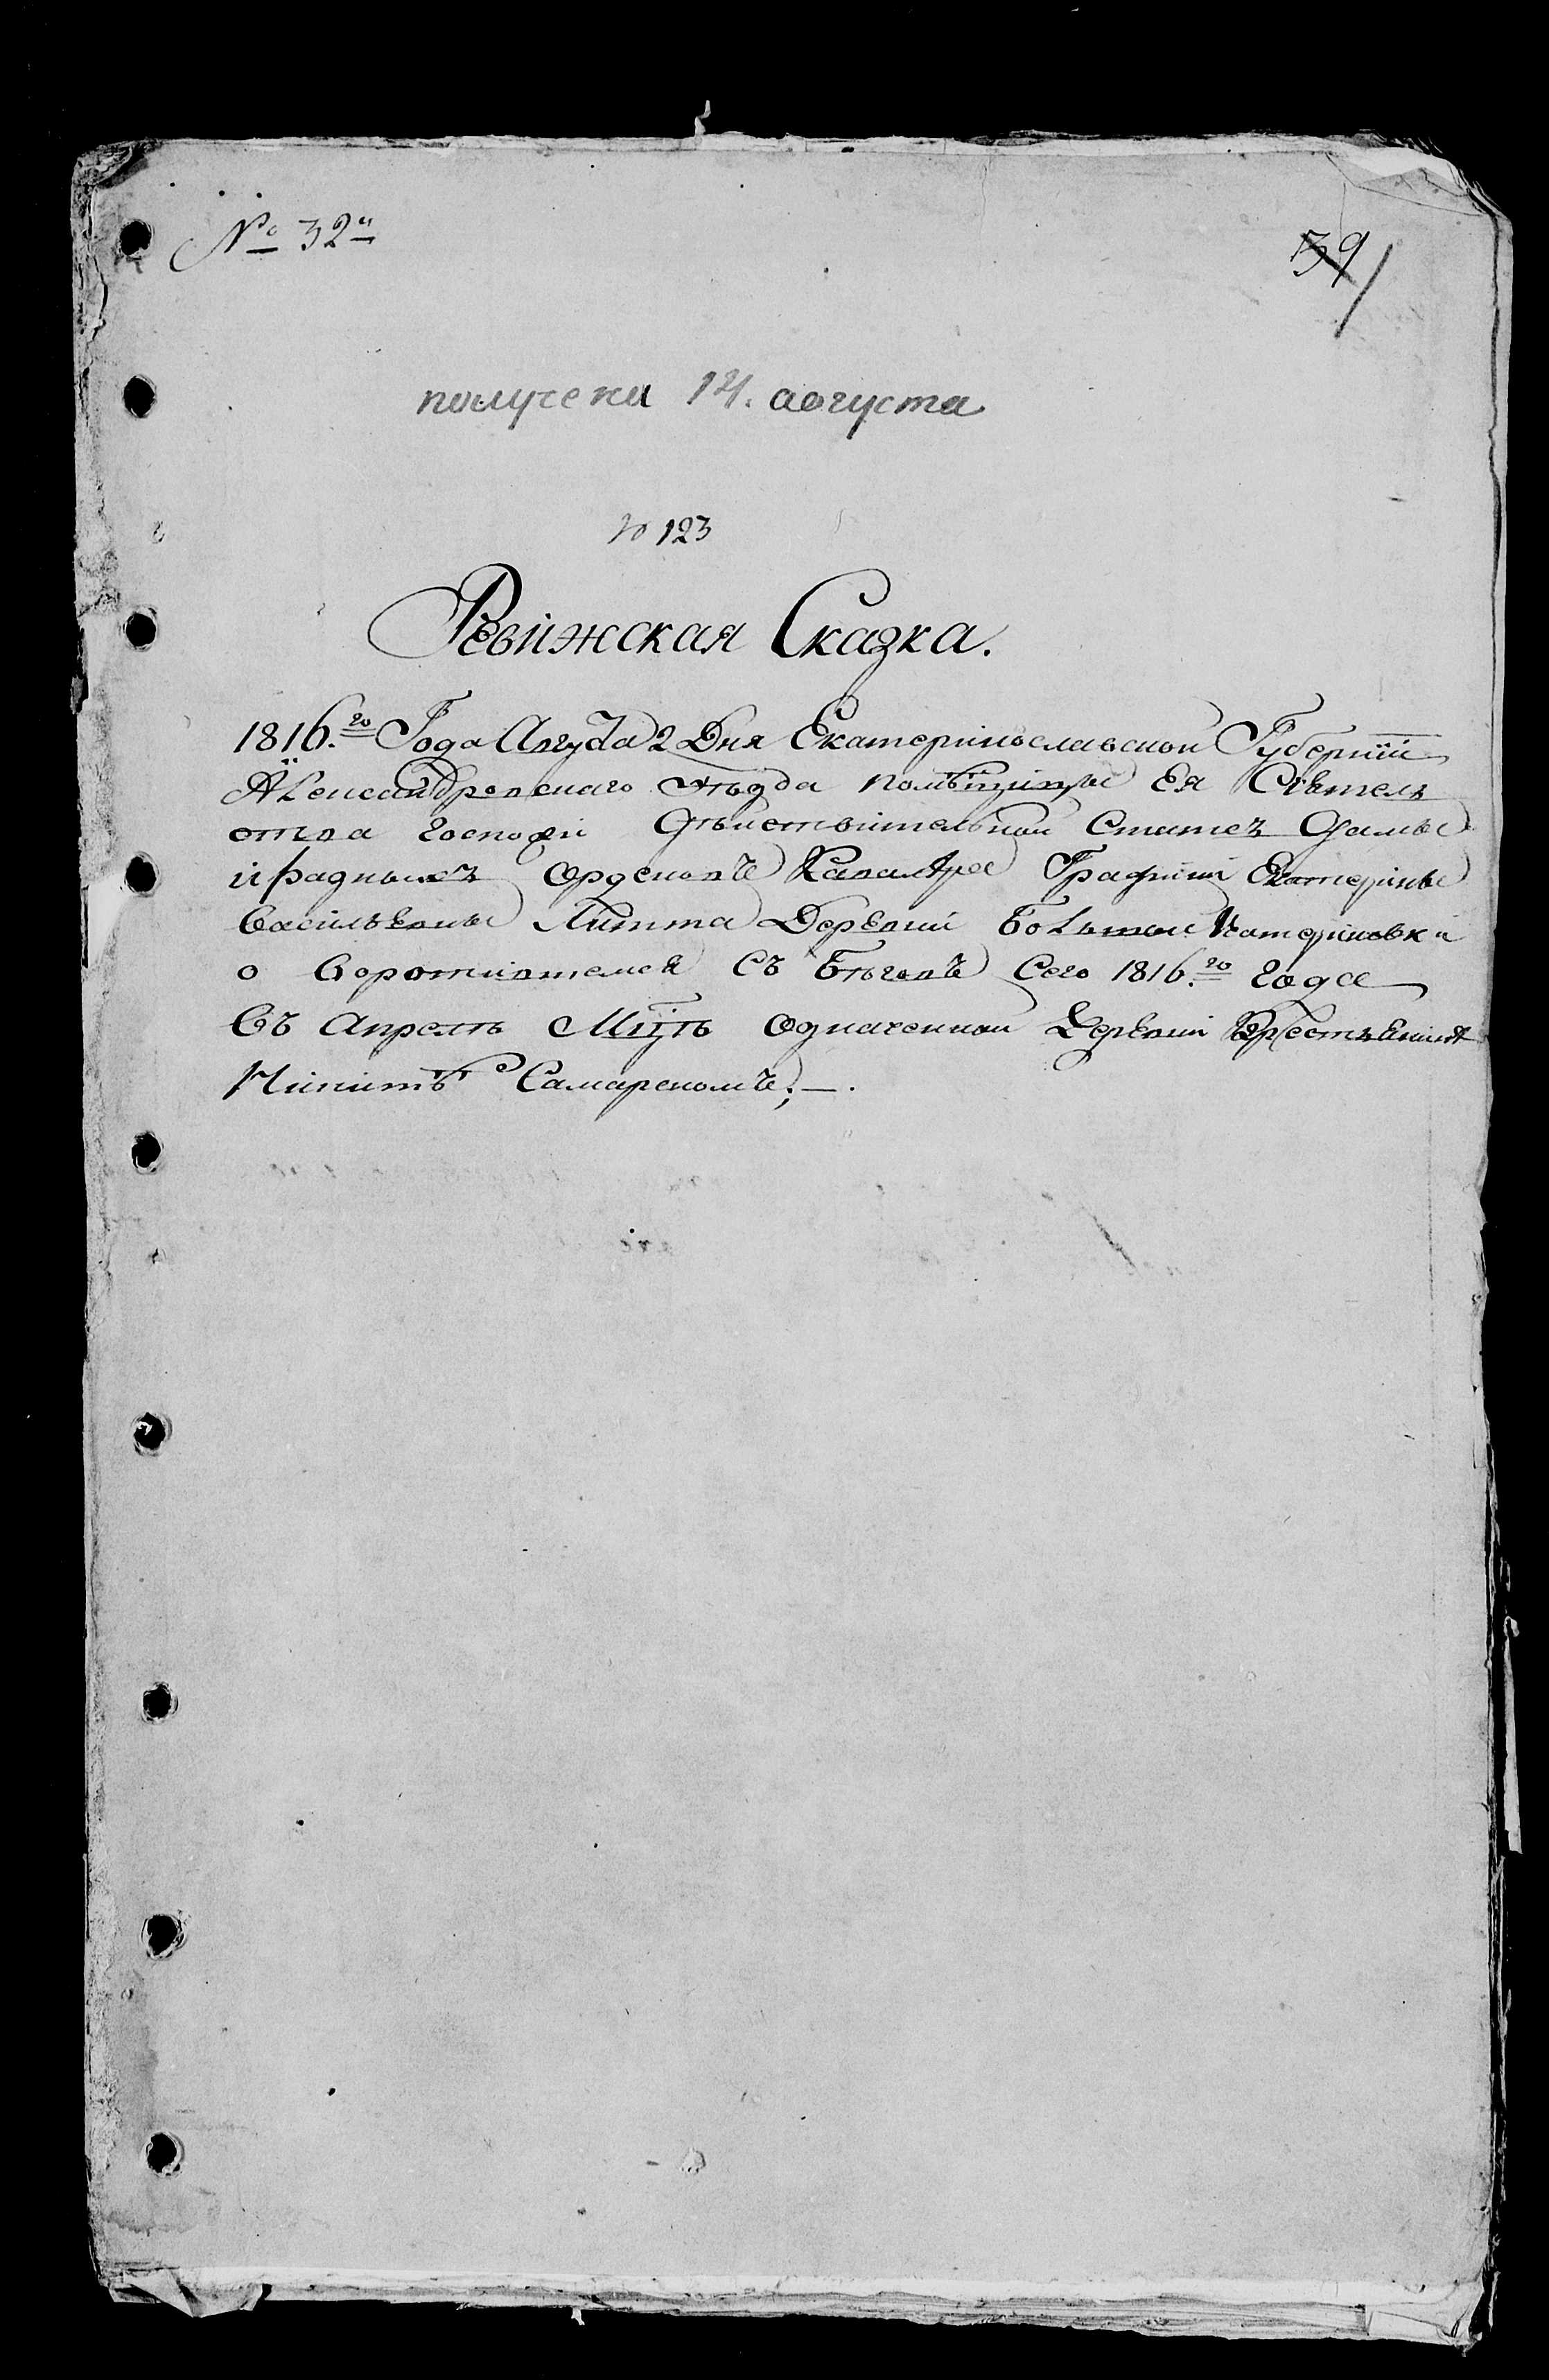 № 32й
39
получена 14. августа
№ 123
Ревижская Сказка.
1816.го Года Августа 2 Дня Екатеринославской Губернїи
Александровскаго уѣзда помѣщицы Ея Сіятель
ства Госпожи дѣйствительной Статсъ Дамы
и разныхъ Орденовъ Кавалера Графини Екатерины
Васильевны Литта Деревни Большой Катериновки
о воротившемся съ бѣговъ сего 1816.го года
въ Апрелѣ Мцѣ означенной деревни крестьянинѣ
Никитѣ Самарскомъ;—.